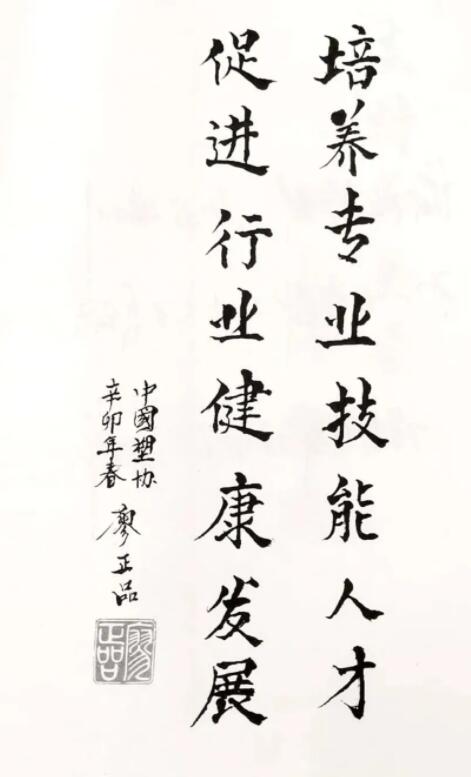 培养专业技能人才
促进行业健康发展
中國塑协
辛卯年春 廖正品
廖正品